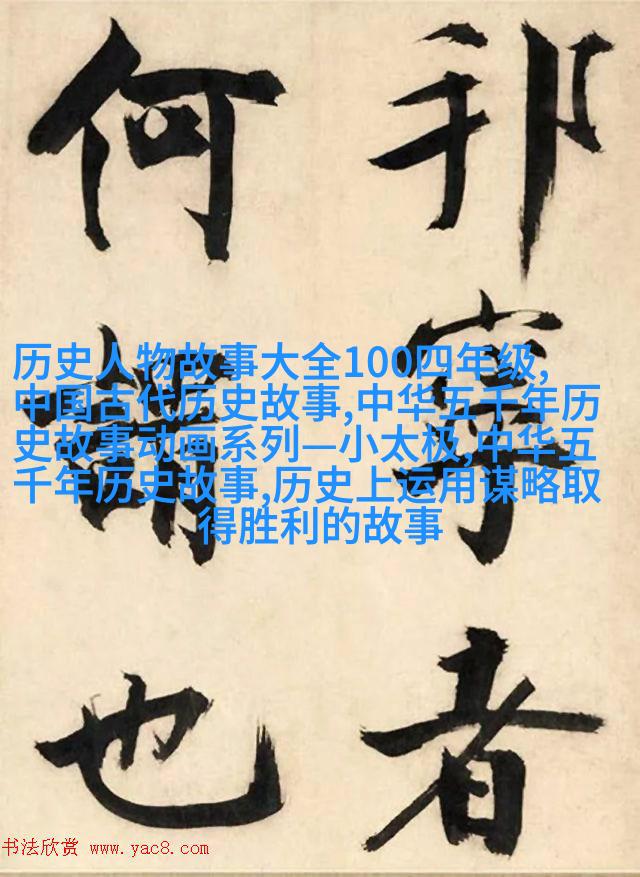 邦寧者
何 也
历史人物故事大全100四年级,
中国古代历史故事,中华五千年历
史故事动画系列—小太极,中华五
千年历史故事,历史上运用谋略取
得胜利的故事
书法欣赏 www.yac8.com